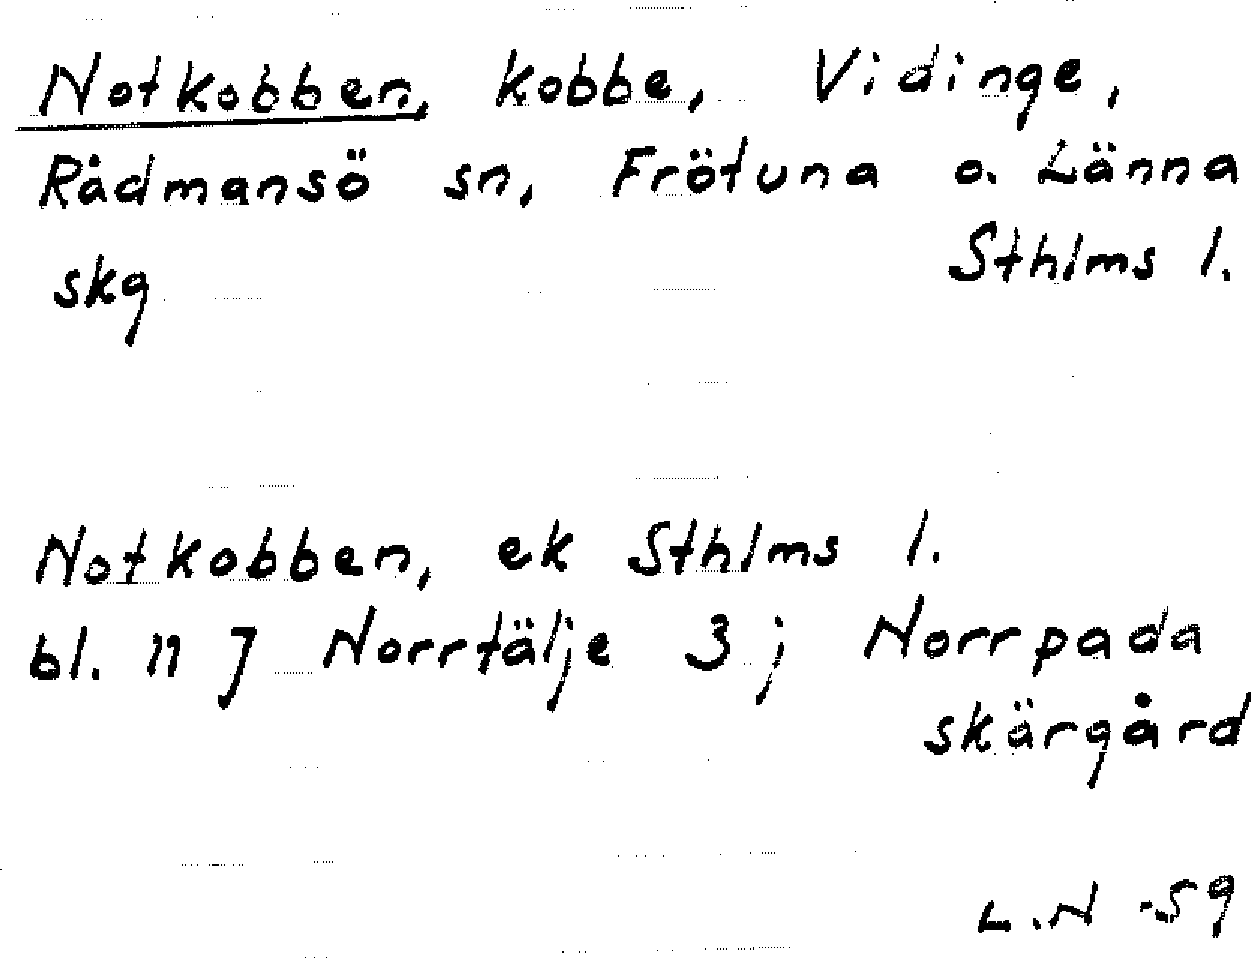 Notkobben, kobbe, Vidinge,
Rådmansö sn, Frötuna o. Länna
skg Sthlms l.
Notkobben, ek Sthlms l.
bl. 117 Norrtälje 3 j Norrpada
skärgård
L.N -59